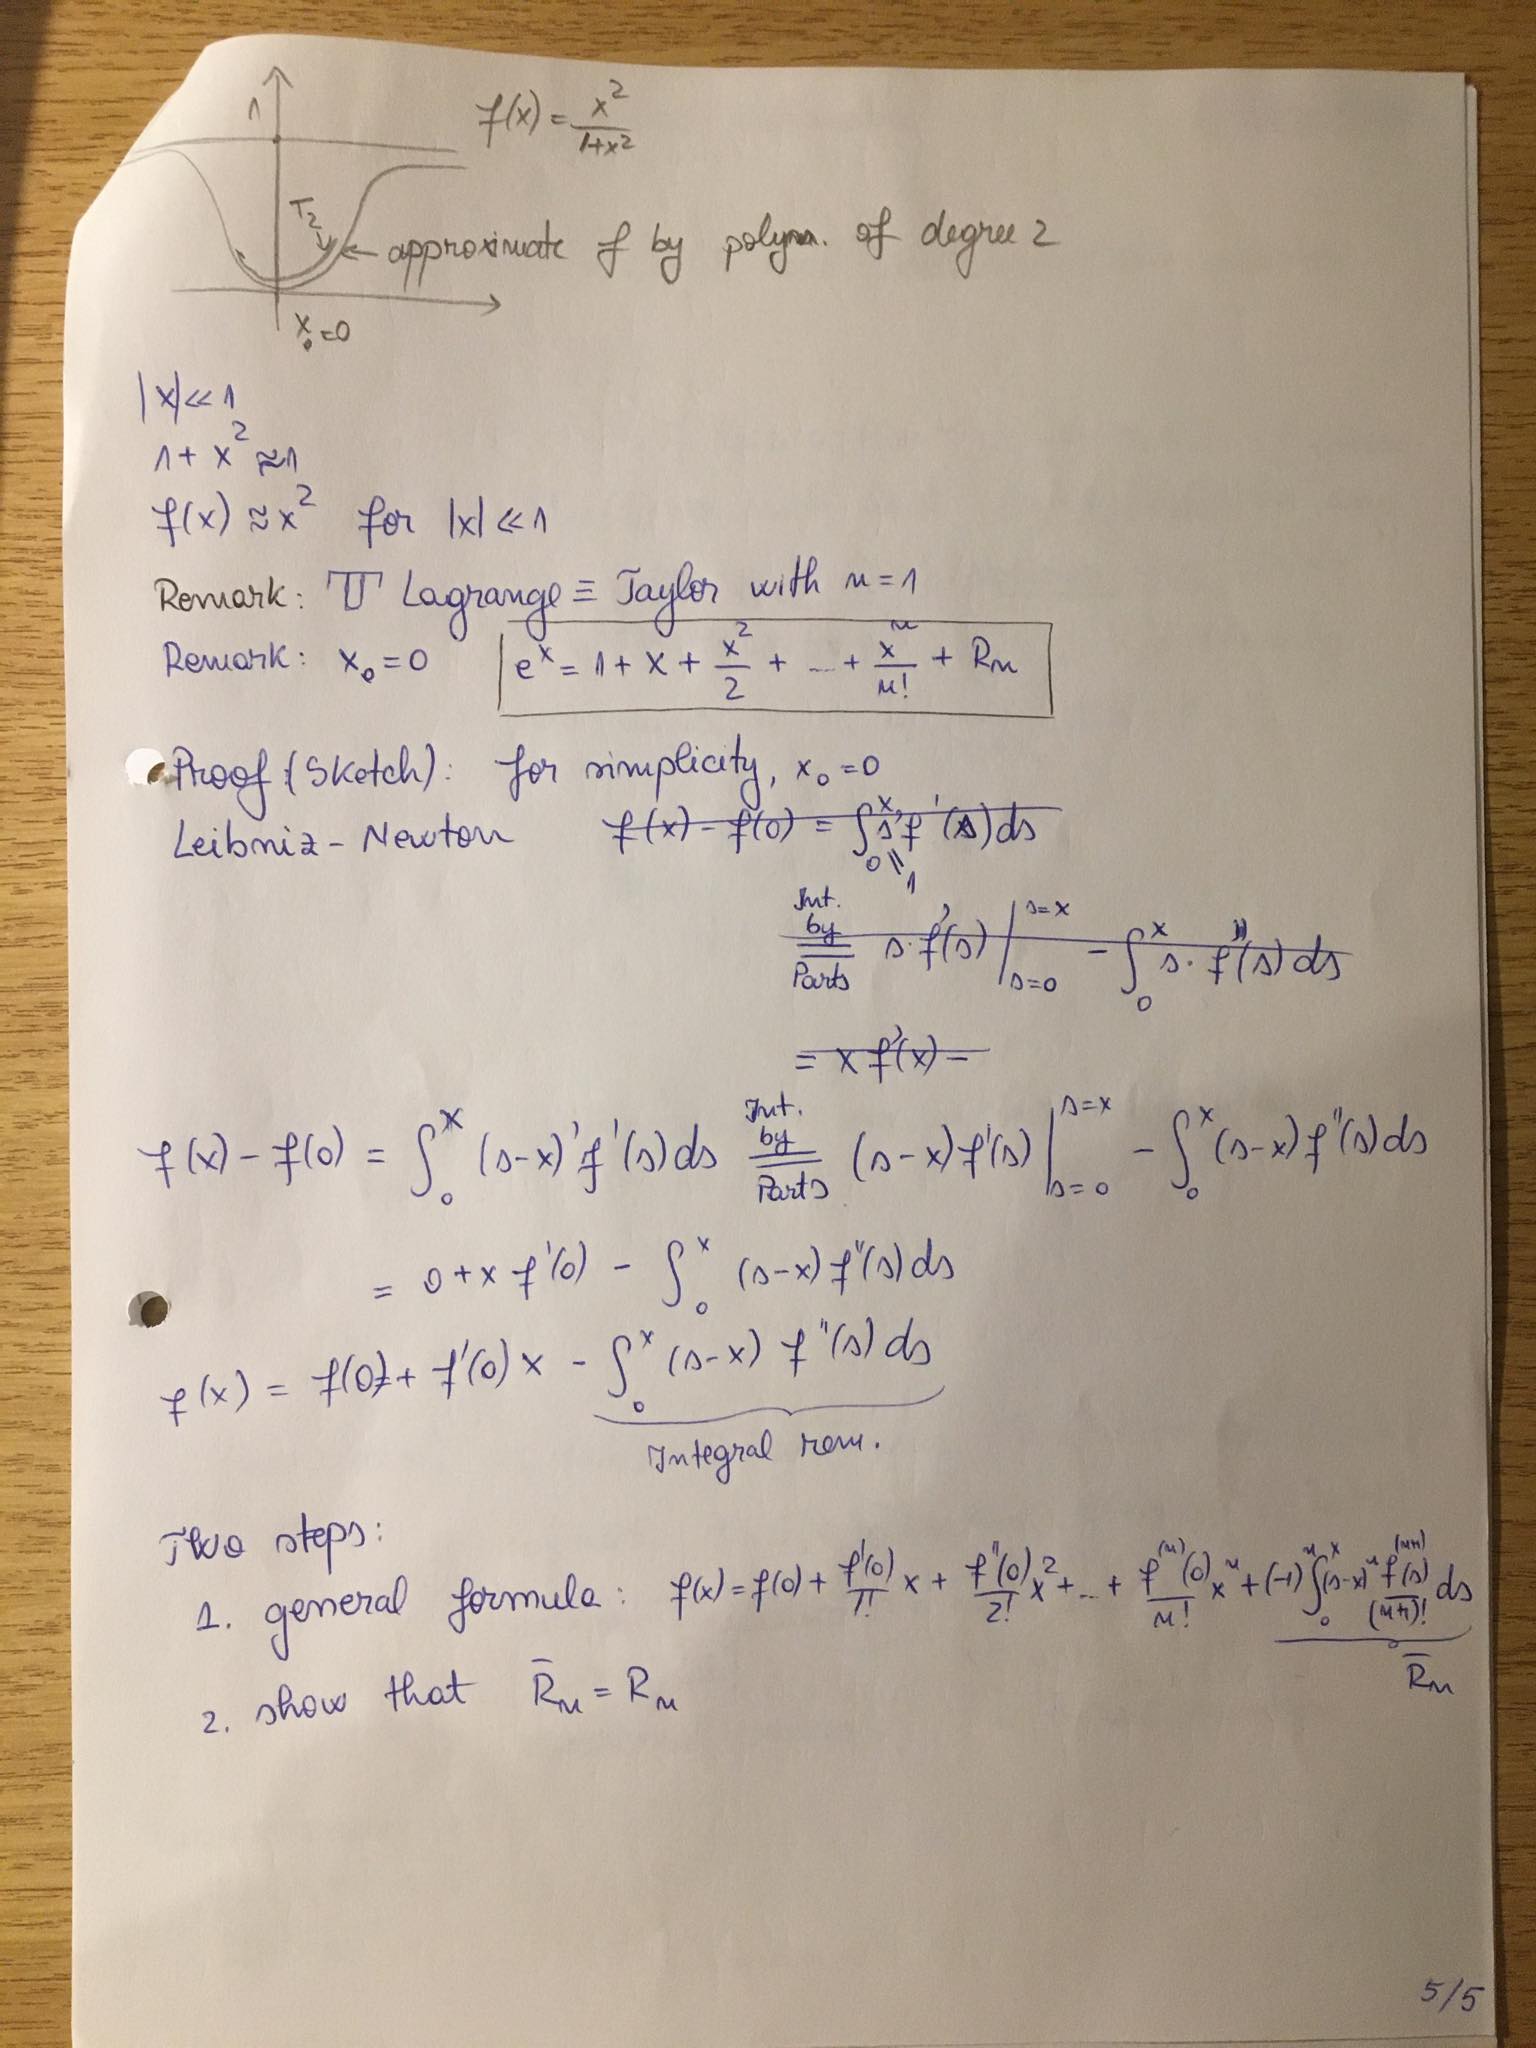 1
f(x) = x²/(1+x²)
T₂
← approximate f by polym. of degree 2
x₀=0
|x| ≪ 1
1 + x² ≈ 1
f(x) ≈ x² for |x| ≪ 1
Remark: T Lagrange ≡ Taylor with n = 1
Remark: x₀ = 0 e^x = 1 + x + x²/2 + ... + xⁿ/n! + Rₙ
Proof (Sketch): for simplicity, x₀ = 0
Leibniz - Newton f(x) - f(0) = ∫₀ˣ s' f'(s) ds
= 1
Int. by Parts = s·f'(s) |_{s=0}^{s=x} - ∫₀ˣ s·f''(s) ds
= x f'(x) -
f(x) - f(0) = ∫₀ˣ (s-x)' f'(s) ds = Int. by Parts (s-x) f'(s) |_{s=0}^{s=x} - ∫₀ˣ (s-x) f''(s) ds
= 0 + x f'(0) - ∫₀ˣ (s-x) f''(s) ds
f(x) = f(0) + f'(0) x - ∫₀ˣ (s-x) f''(s) ds
Integral rem.
Two steps:
1. general formula: f(x) = f(0) + f'(0)/1! x + f''(0)/2! x² + ... + f⁽ⁿ⁾(0)/n! xⁿ + (-1)ⁿ ∫₀ˣ (s-x)ⁿ f⁽ⁿ⁺¹⁾(s)/(n+1)! ds
R̄ₙ
2. show that R̄ₙ = Rₙ
5/5